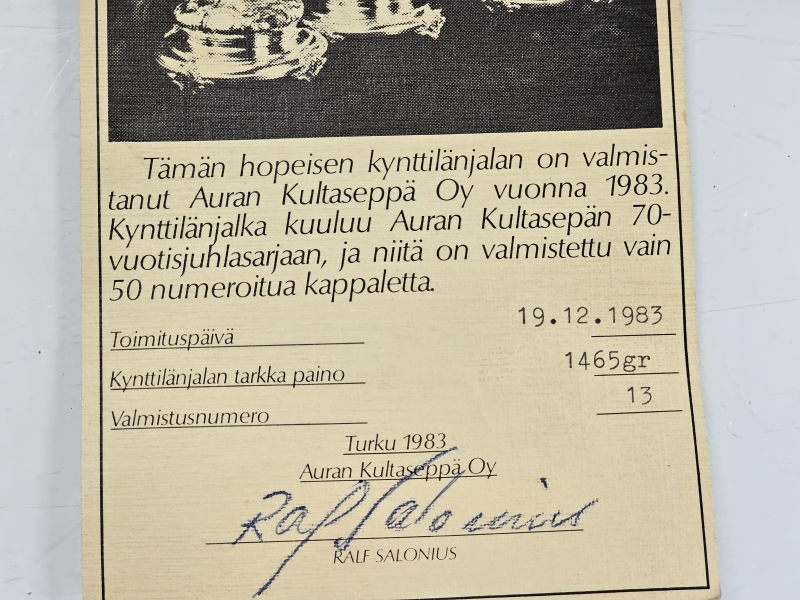 Tämän hopeisen kynttilänjalan on valmis-
tanut Auran Kultaseppä Oy vuonna 1983.
Kynttilänjalka kuuluu Auran Kultasepän 70-
vuotisjuhlasarjaan, ja niitä on valmistettu vain
50 numeroitua kappaletta.
Toimituspäivä 19.12.1983
Kynttilänjalan tarkka paino 1465gr
Valmistusnumero 13
Turku 1983
Auran Kultaseppä Oy
Ralf Salonius
RALF SALONIUS